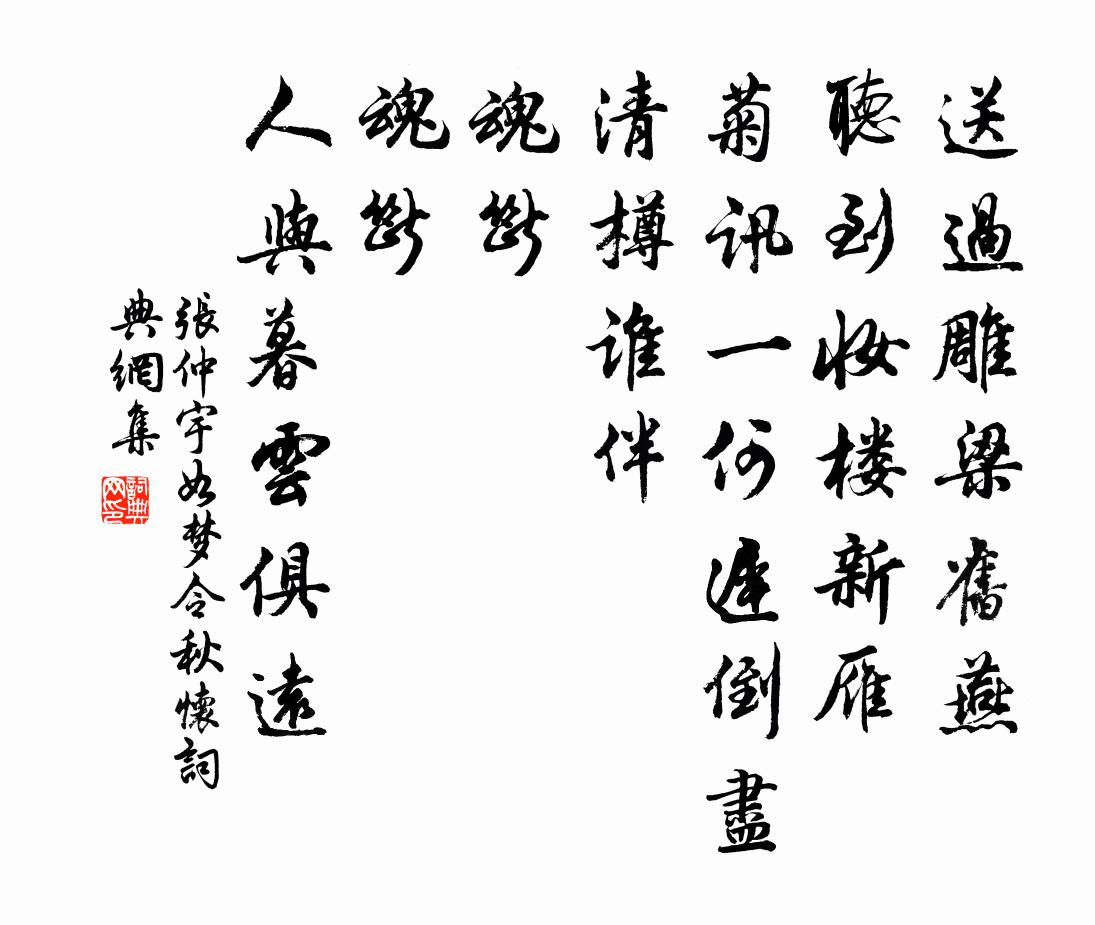 送過雕梁舊燕
聴到妆楼新雁
菊訊一何遲倒盡
清樽誰伴
魂斷
魂斷
人與暮雲俱遠
張仲宇如梦令秋懷詞
典網集
詞典网印